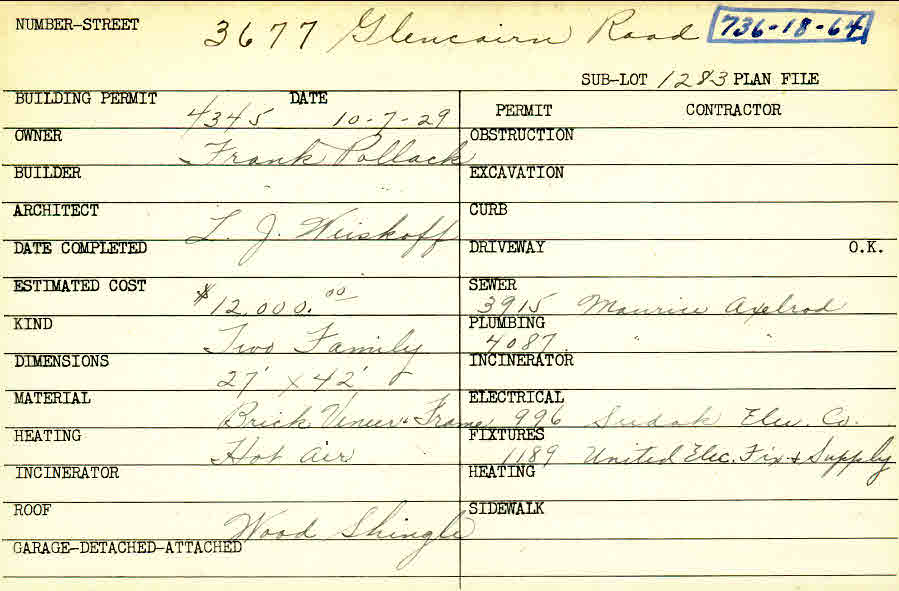 NUMBER-STREET 3677 Glencairn Road 736-18-64
SUB-LOT 1283 PLAN FILE
BUILDING PERMIT 4345 DATE 10-7-29
PERMIT CONTRACTOR
OWNER Frank Pollack
OBSTRUCTION
BUILDER " "
EXCAVATION
ARCHITECT L. J. Weiskoff
CURB
DATE COMPLETED
DRIVEWAY O.K.
ESTIMATED COST $12,000.00
SEWER 3915 Maurice Axelrod
KIND Two Family
PLUMBING 4087 " "
DIMENSIONS 27' x 42'
INCINERATOR
MATERIAL Brick Veneer & Frame
ELECTRICAL 996 Sudak Elec. Co.
HEATING Hot Air
FIXTURES 1189 United Elec. Fix & Supply
INCINERATOR
HEATING
ROOF Wood Shingle
SIDEWALK
GARAGE-DETACHED-ATTACHED